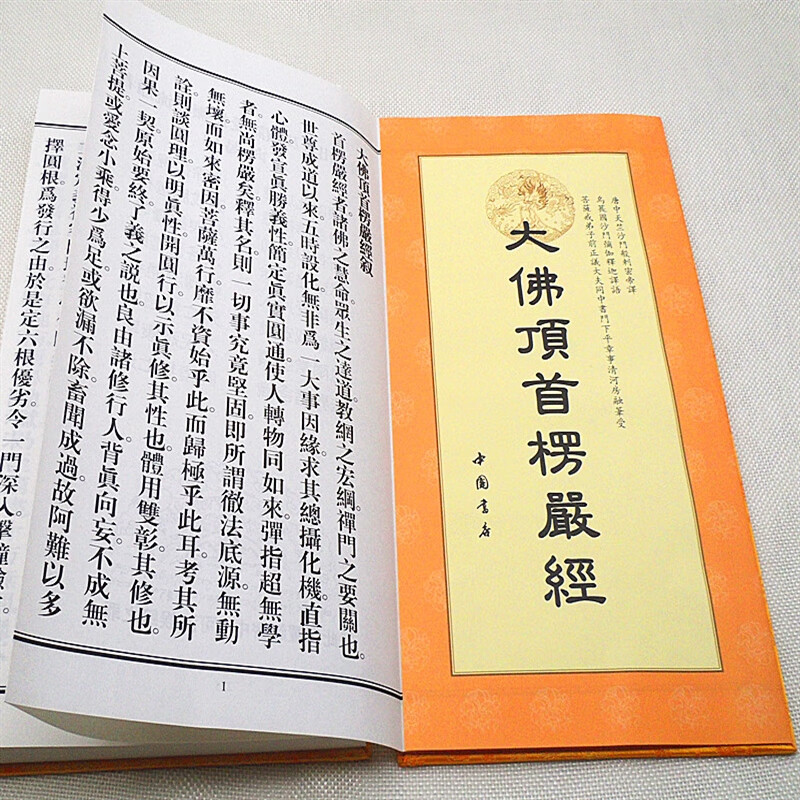 唐中天竺沙門般剌密帝譯
烏萇國沙門彌伽釋迦譯語
菩薩戒弟子前正議大夫同中書門下平章事清河房融筆受
大佛頂首楞嚴經
中國書店
大佛頂首楞嚴經敍
首楞嚴經者諸佛之慧命眾生之達道教網之宏綱禪門之要關也。
世尊成道以來五時設化無非爲一大事因緣求其總攝化機直指
心體發宣眞勝義性簡定眞實圓通使人轉物同如來彈指超無學
者無尚楞嚴矣。釋其名則一切事究竟堅固即所謂徹法底源無動
無壞。而如來密因菩薩萬行靡不資始乎此而歸極乎此耳考其所
詮則談圓理以明眞性開圓行以示眞修其性也。體用雙彰其修也。
因果一契原始要終了義之說也。良由諸修行人背眞向妄不成無
上菩提或愛念小乘得少爲足。或欲漏不除畜聞成過。故阿難以多
1
擇圓根爲發行之由。於是定六根優劣令一門深入。擊鐘驗